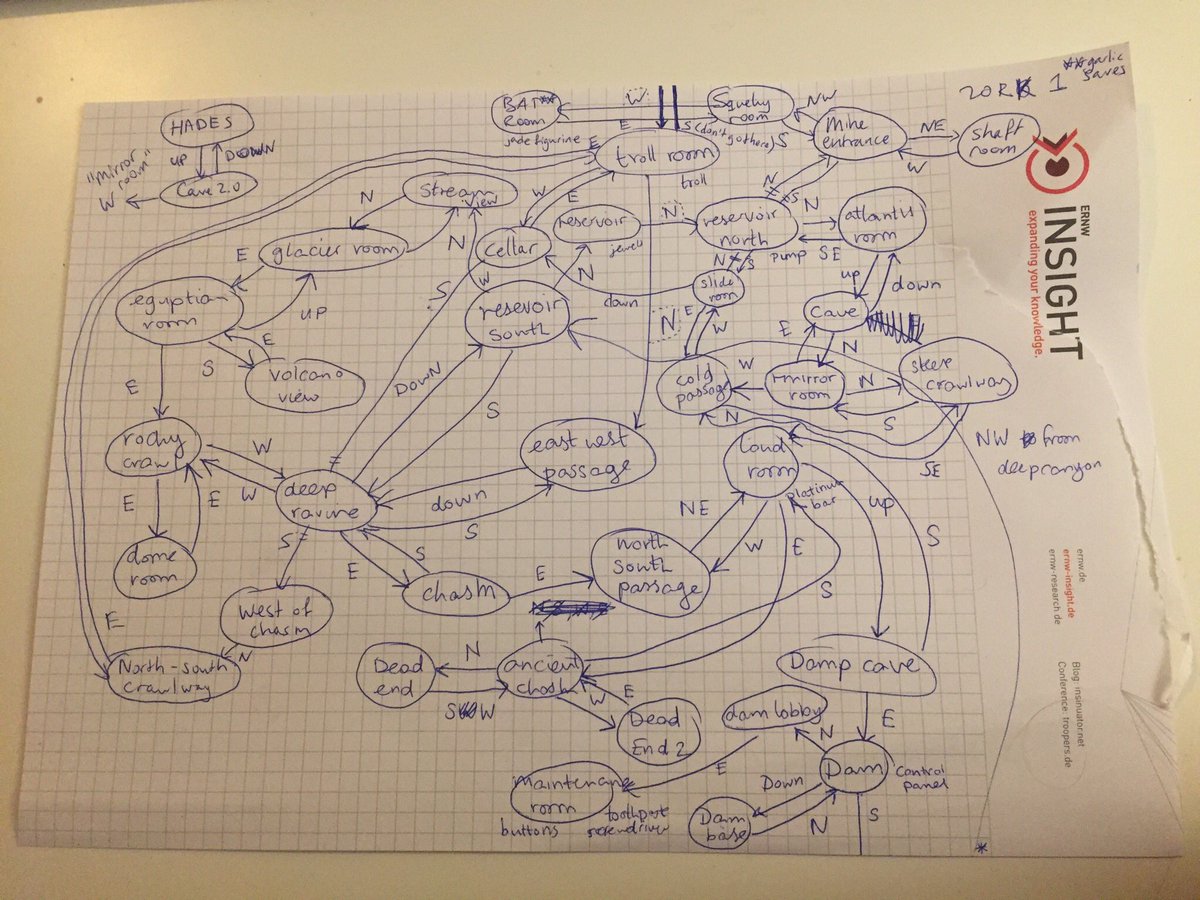 ZORK 1
**garlic
saves
HADES
UP
DOWN
"mirror
room"
W
Cave 2.0
BAT**
Room
jade figurine
W
E
Squeky
room
S (don't go there)
NW
S
Mine
entrance
NE
W
Shaft
room
E
troll room
troll
N
Stream
view
W
E
N
glacier room
E
N
cellar
reservoir
jewels
N
reservoir
north
N
pump
SE
atlantis
room
N
S
egyptian
room
UP
S
W
reservoir
South
N
down
N
S
slide
room
up
down
Cave
E
S
E
volcano
view
DOWN
S
N
E
W
E
N
W
cold
passage
mirror
room
N
S
steep
crawlway
E
N
SE
NW from
deep canyon
rocky
crawl
W
W
E
E
dome
room
deep
ravine
east west
passage
down
S
loud
room
platinum
bar
up
S
S
E
S
E
chasm
NE
W
E
S
north
south
passage
west of
chasm
E
N
North-south
crawlway
Dead
end
N
SW
ancient
chasm
E
W
Dead
End 2
Damp cave
E
dam lobby
N
E
Dam
control
panel
Down
N
S
Dam
base
maintenance
room
buttons
toothpaste
screwdriver
*
ERNW
INSIGHT
expanding your knowledge.
ernw.de
ernw-insight.de
ernw-research.de
Blog: insinuator.net
Conference: troopers.de